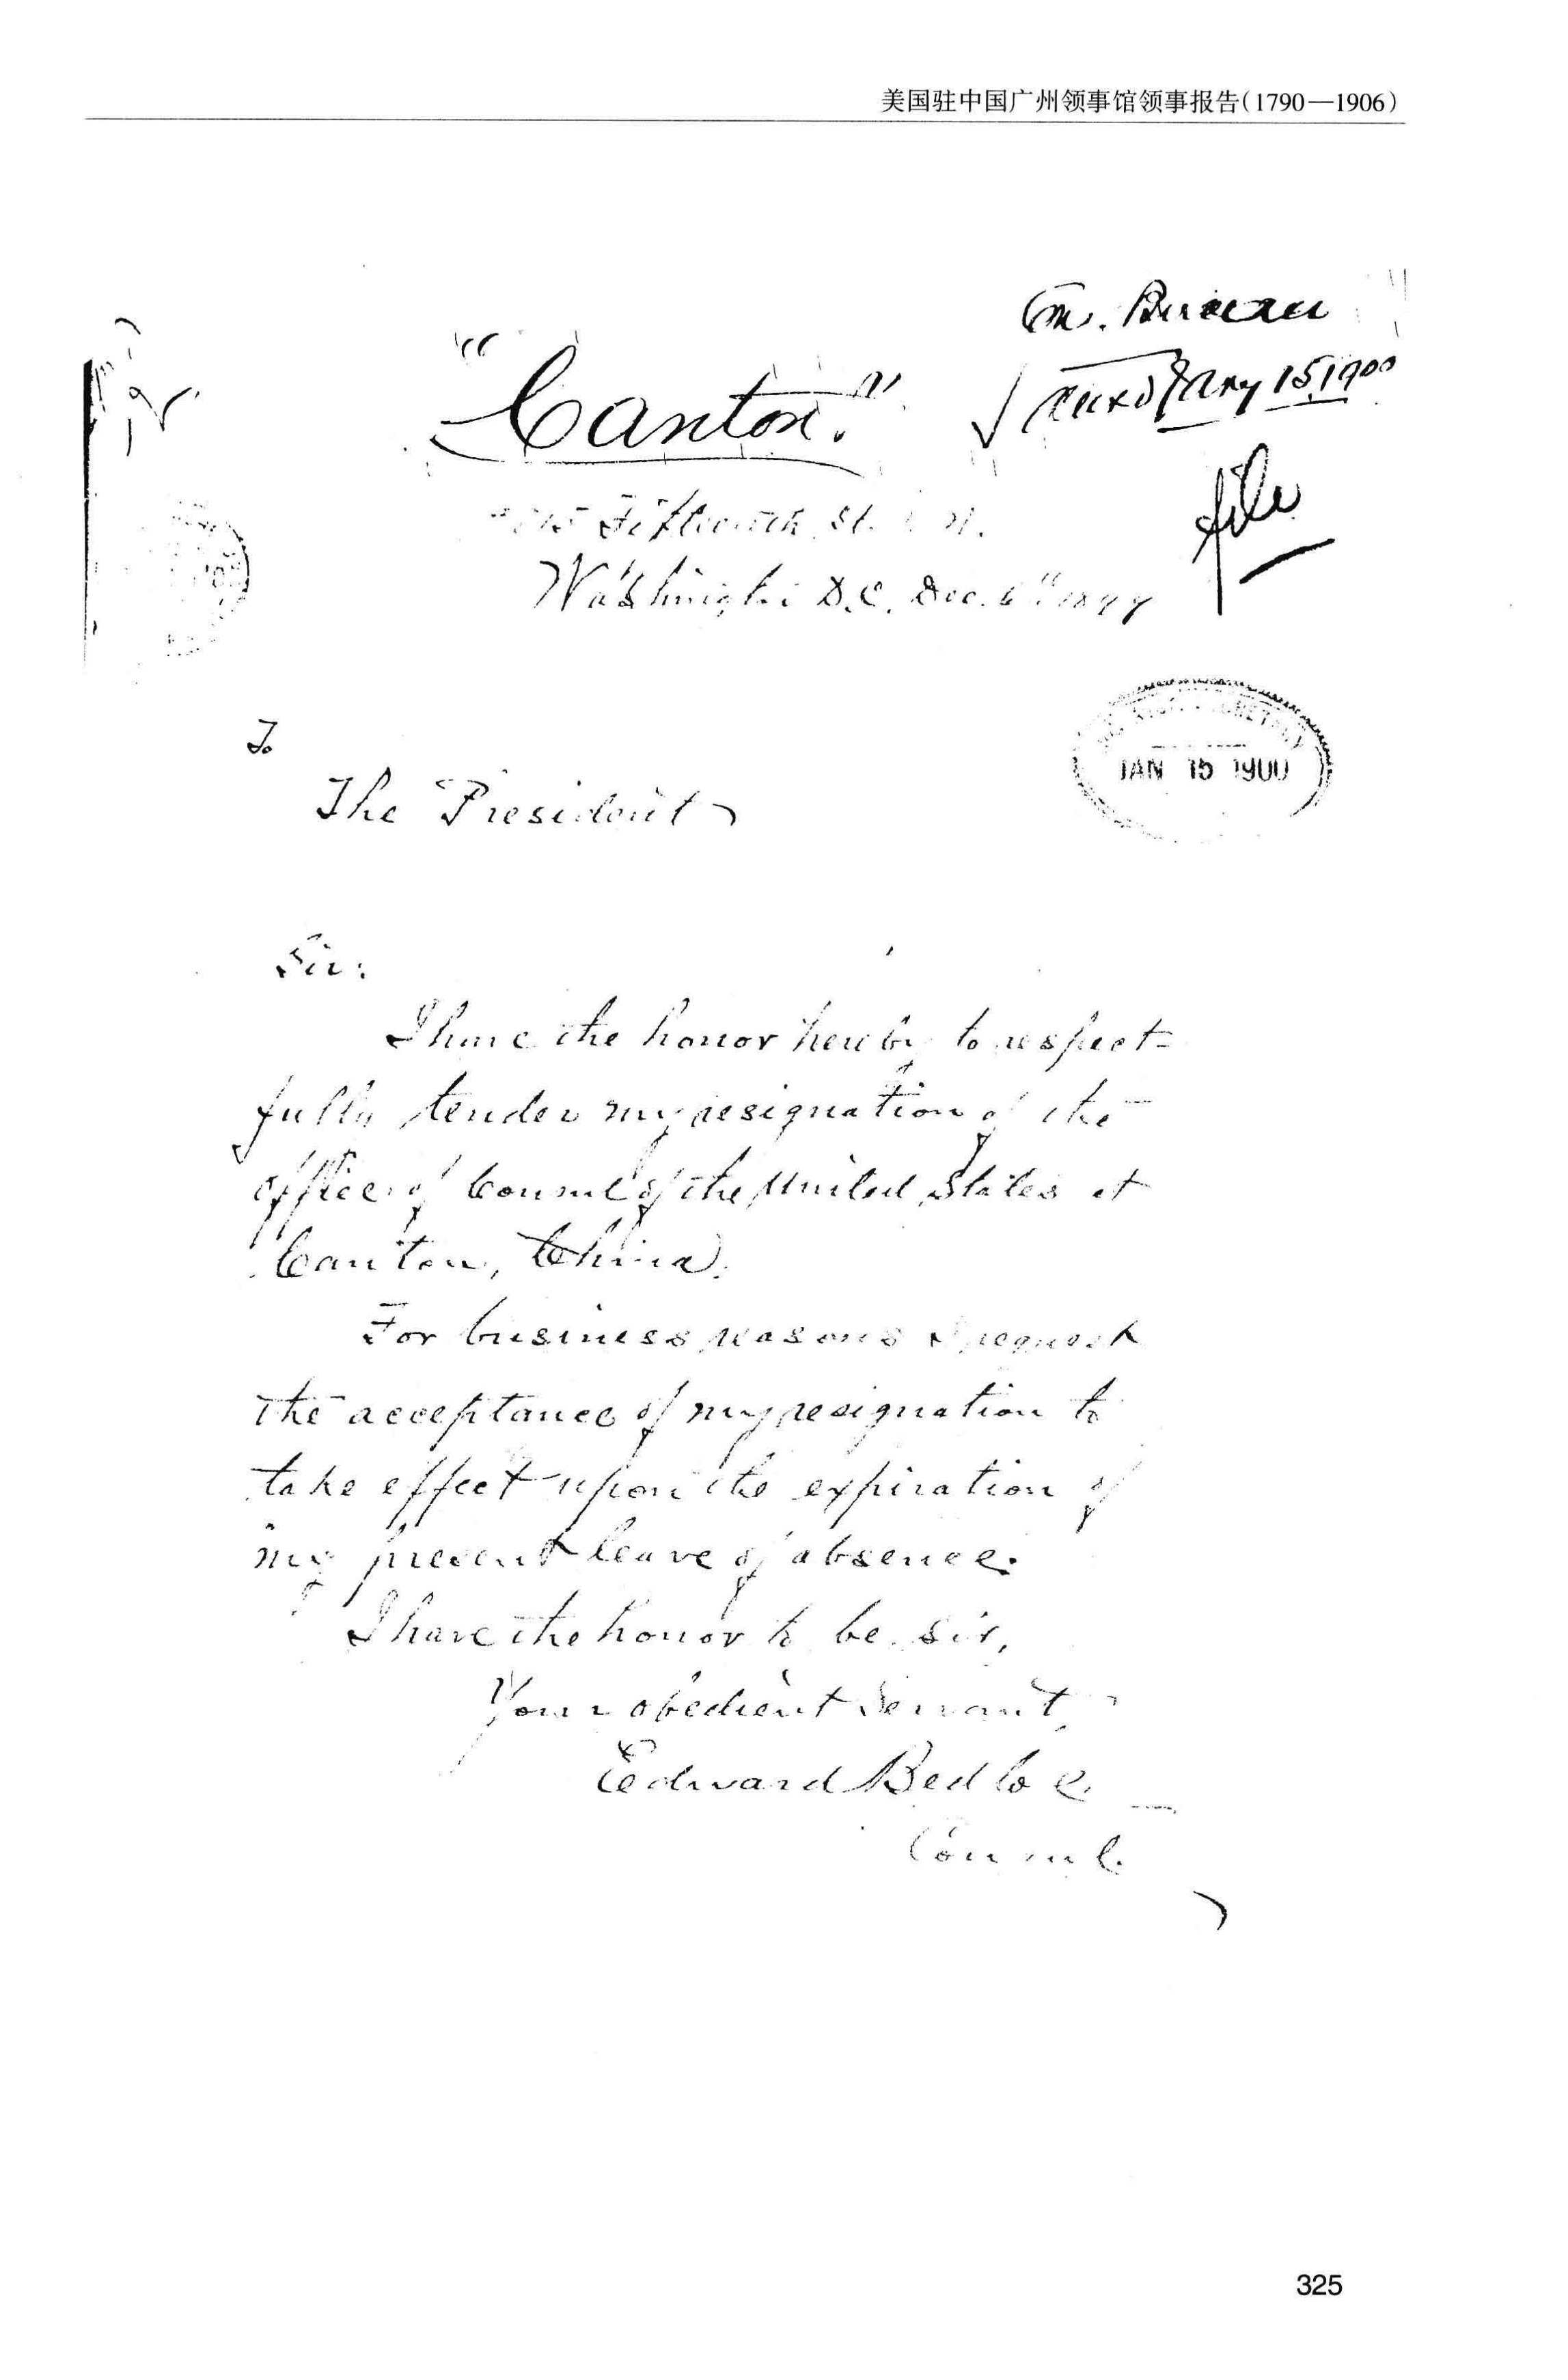 美国驻中国广州领事馆领事报告(1790—1906)
Bureau
"Canton."
15 1900
file
Fifteenth St. N.
Washington D.C. Dec. 6" 1899
To
The President
JAN 15 1900
Sir:
I have the honor hereby to respect=
fully tender my resignation of the
office of Consul of the United States at
Canton, China.
For business reasons I request
the acceptance of my resignation to
take effect upon the expiration of
my present leave of absence.
I have the honor to be, sir,
Your obedient servant,
Edward Bedloe
Consul.
325